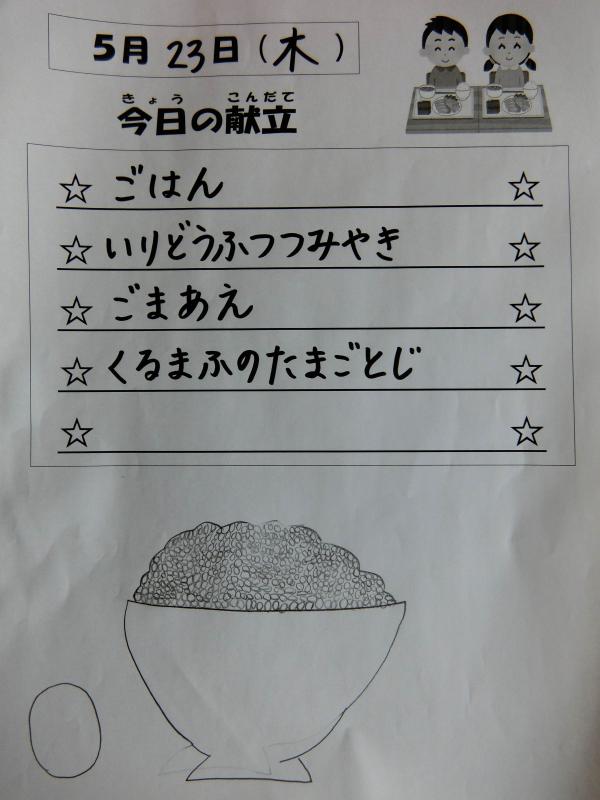 5月23日(木)
きょう こんだて
今日の献立
☆ ごはん ☆
☆ いりどうふつつみやき ☆
☆ ごまあえ ☆
☆ くるまふのたまごとじ ☆
☆ ☆